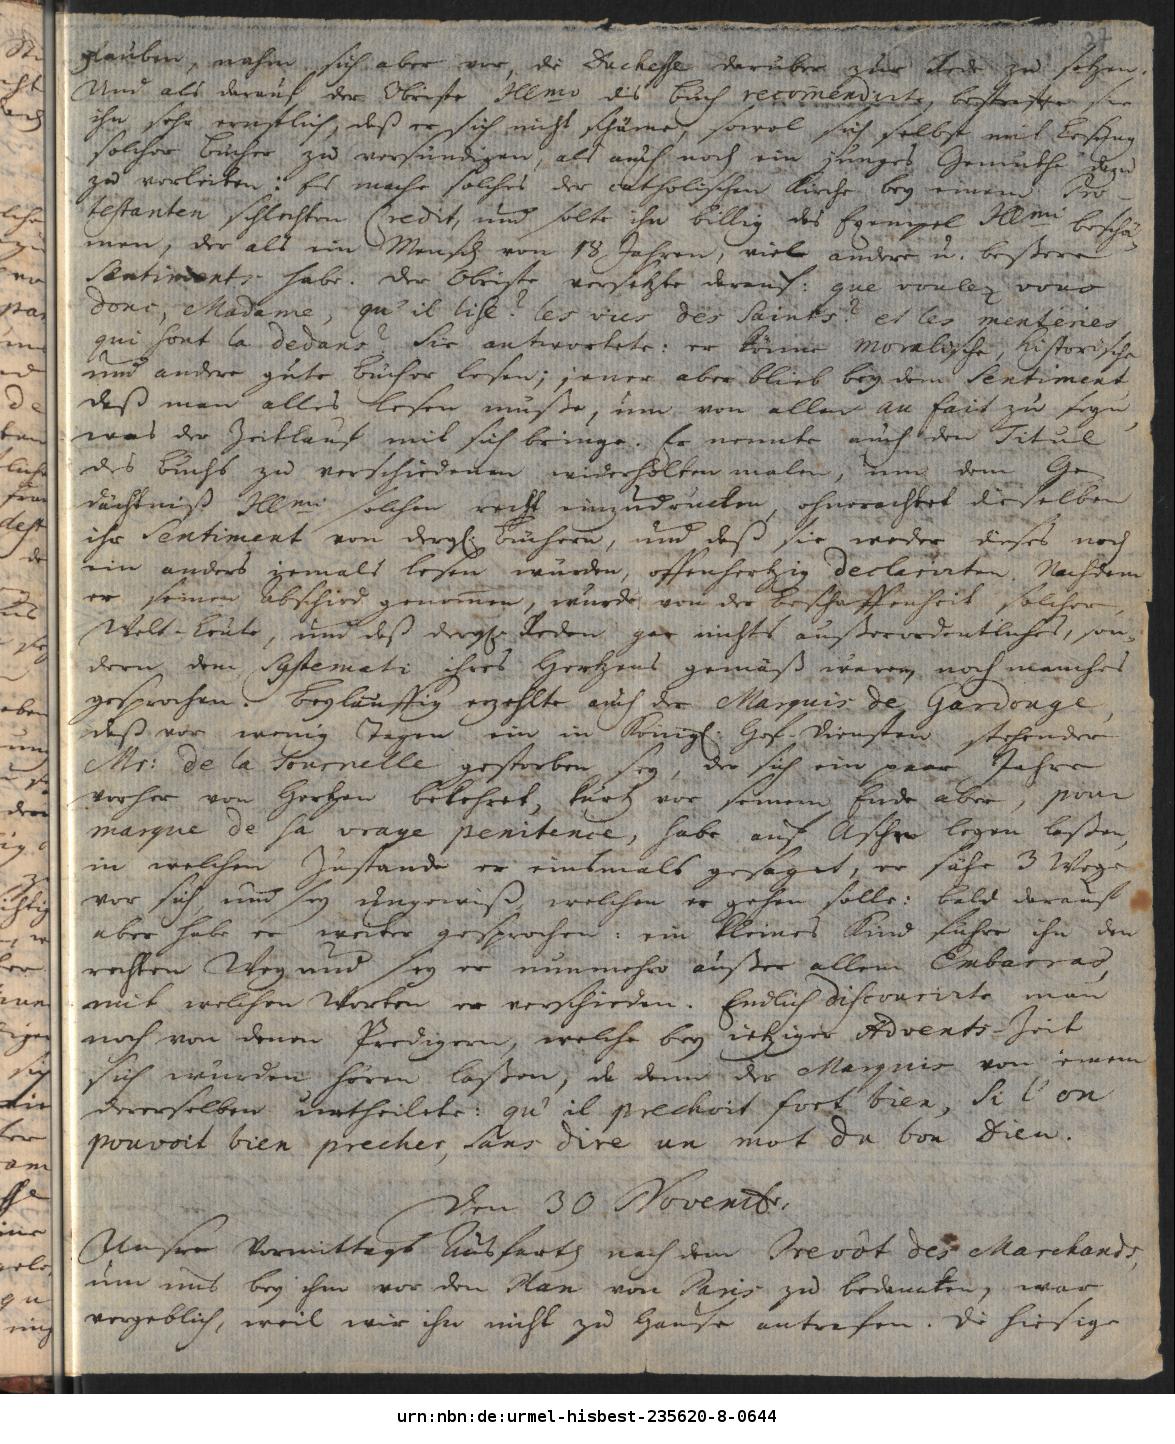 37
glauben, nahm sich aber vor, die Duchesse darüber zur Rede zu setzen.
Und als darauf der Obriste Illmo dis Buch recomendirte, bestrafte sie
ihn sehr ernstlich, daß er sich nicht schäme, sowol sich selbst mit Lesung
solcher Bücher zu versündigen, als auch noch ein junges Gemüthe dazu
zu verleiten: Es mache solches der catholischen Kirche bey einem Pro-
testanten schlechten Credit, und solte ihn billig das Exempel Illmi beschä-
men, der als ein Mensch von 18 Jahren, viel andere u. beßere
Sentiments habe. Der Obriste versetzte darauf: que voulez vous
donc, Madame, qu'il lise? les vies des Saints? et les menteries
qui sont la dedans? Sie antwortete: er könne moralische, historische
und andere gute Bücher lesen; jener aber blieb bey dem Sentiment,
daß man alles lesen müße, um von allen au fait zu seyn,
was der Zeitlauf mit sich bringe. Er nennte auch den Titul
des Buchs zu verschiedenen widerholten malen, um dem Ge-
dächtniß Illmi solchen recht einzudrucken, ohnerachtet dieselben
ihr Sentiment von dergl. Büchern, und daß sie weder dieses noch
ein anders jemals lesen würden, offenhertzig declarirten. Nachdem
er seinen Abschied genommen, wurde von der Beschaffenheit solcher
Welt-Leute, und daß dergl. Reden gar nichts außerordentliches, son-
dern dem Systemati ihres Hertzens gemäß waren, noch manches
gesprochen. Beyläuffig erzehlte auch der Marquis de Gardouge,
daß vor wenig Tagen ein in Königl. Hof-Diensten stehender
Mr: de la Tournelle gestorben sey, der sich ein paar Jahre
vorher von Hertzen bekehret, kurtz vor seinem Ende aber, pour
marque de sa vraye penitence, habe auf Asche legen laßen,
in welchen Zustande er einsmals gesaget, er sähe 3 Wege
vor sich und sey ungewiß, welchen er gehen solle: bald darauf
aber habe er weiter gesprochen: ein kleines Kind führe ihn den
rechten Weg und sey er nunmehro außer allem Embarras,
mit welchen Worten er verschieden. Endlich discourirte man
noch von denen Predigern, welche bey itziger Advents-Zeit
sich würden hören laßen, da denn der Marquis von einem
dererselben urtheilete: qu'il prechoit fort bien, si l'on
pouvoit bien precher, sans dire un mot du bon Dieu.
Den 30 Novembr.
Unsere Vormittags Ausfarth nach dem Prevôt des Marchands,
um uns bey ihm vor den Plan von Paris zu bedancken, war
vergeblich, weil wir ihn nicht zu Hause antrafen. Die hiesige
urn:nbn:de:urmel-hisbest-235620-8-0644